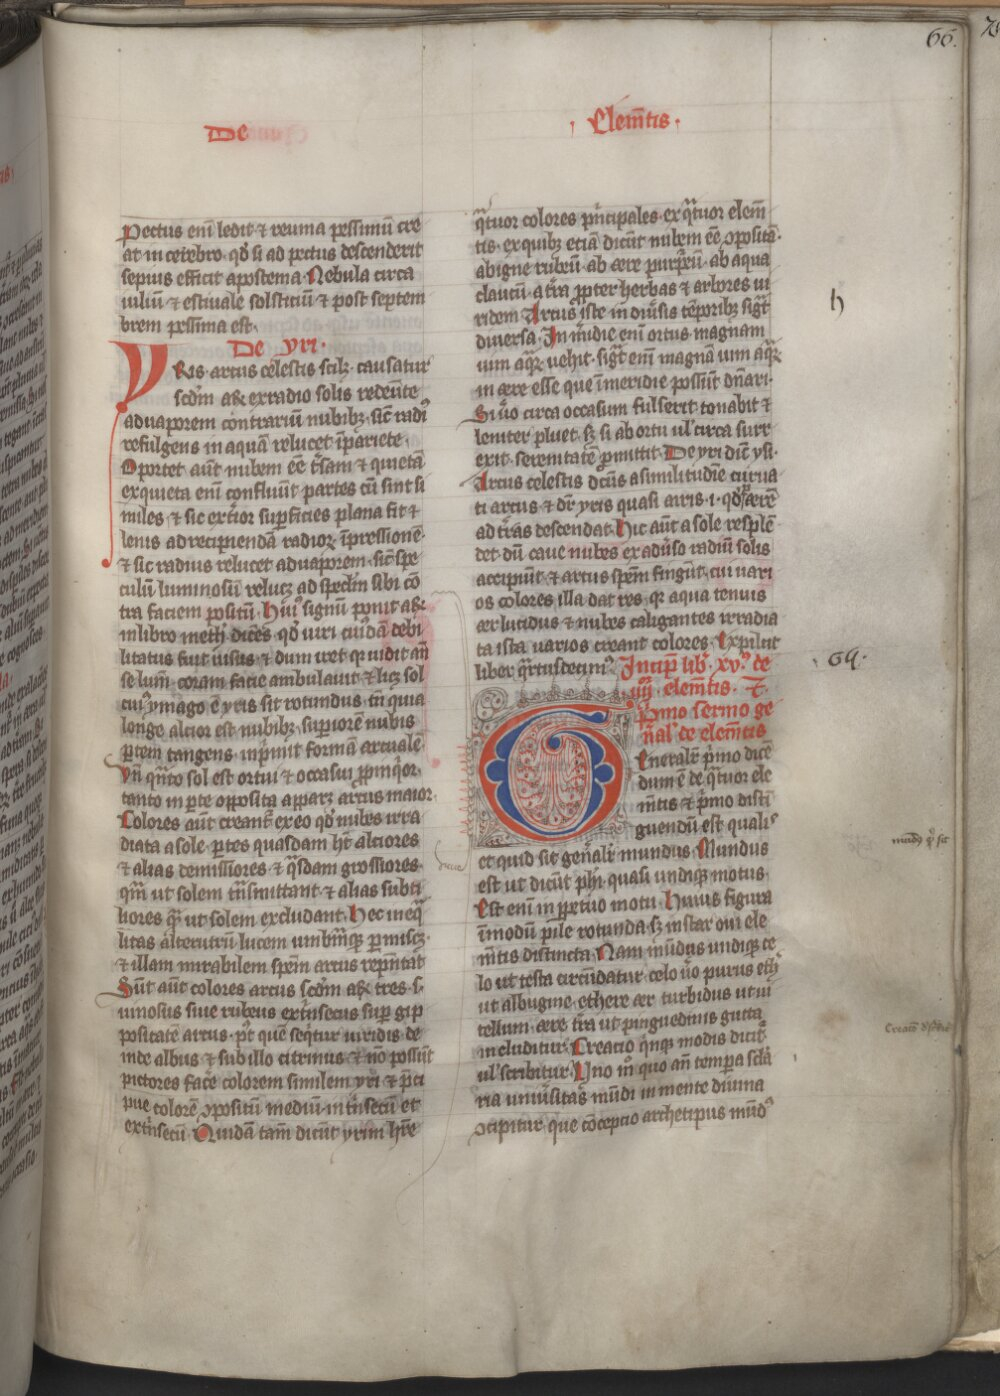 66.
De
Elem̄tis.
Pectus eni͛ ledit ⁊ reuma pessimū cre
at in cerebro. qđ si ad pectus descenderit
sepius efficit apostema. Nebula circa
iuliū ⁊ estiuale solsticiū ⁊ post septem
brem pessima est.
De yri.
Yris. arcus celestis scilꝫ causatur
aduaporem contrariū nubibꝫ. sic̄
refulgens in aquam relucet ī pariete.
Oportet aut̄ nubem eē ⁊ quietā
exquieta eni͛ confluūt partes cū sint si
miles ⁊ sic exterior suꝑficies plana fit ⁊
lenis ad recipiendā radioꝝ īpressionē.
⁊ sic radius relucet aduaporem. sic̄ spe
culū luminosū relucꝫ ad speclm̄ sibi cō
tra faciem positū.
litatus fuit uisus ⁊ dum iret
se lum̄. coram facie ambulauit ⁊ licꝫ sol
cuiꝰ ymago ē yris sit rotundus. tn̄ quia
longe alcior est nubibꝫ. supiorē nubis
ꝑtem tangens inp̄mit formā arcualē
Vn̄ qn̄to sol est ortui ⁊ occasui ꝓpinqͥor.
tanto in ꝑte opposita apparꝫ arcus maior.
Colores aut̄ creant̄ ex eo qđ nubes irra
diata a sole. ꝑtes quasdam hꝫ alciores
⁊ alias demissiores ⁊ qͣsdam grossiores
qm̄ ut solem tͣnsmittant ⁊ alias subti
liores qͣm ut solem excludant. Hec ineqͣ
litas alterutrū lucem umbrāqꝫ ꝑmiscꝫ.
⁊ illam mirabilem spēm arcus rep̄ntat
Sūt aut̄ colores arcus scđm aꝶ tres. s.
uinosus siue rubeus extͥnsecus suꝑ
positatē arcus. pꝰ quē seqͥtur uiridis. de
inde albus ⁊ sub illo citrinus ⁊ nō possūt
pictores facē colorem similem yri ⁊ p̄ci
pue colorē ꝯpositū mediū intͥnsecū et
extͥnsecū. Quidā tam̄ dicūt yrim hr̄e
qͣtuor colores pͥncipales. ex qͣtuor elem̄
tis. ex quibꝫ etiā dicūt nubem eē ꝯpositā.
ab igne rubeū. ab aere purpͥeū. ab aqua
glaucū. a tͥra ꝓpter herbas ⁊ arbores ui
ridem. Arcus iste in diūsis tēporibꝫ sigͭ
diuersa. In mͥdie eni͛ ortus magnam
uim aqͣꝝ uehit. sigͭ eni͛ magnā uim aqͣꝝ
in aere esse que in meridie possūt dn̄ari.
Si ūo circa occasum fulserit. tonabit ⁊
leniter pluet. sꝫ si ab ortu ul' circa surr
exit. serenitatē ꝓmittit. De yri dic̄ ysi.
Arcus celestis dc̄us a similitudīe curua
ti arcus ⁊ dr̄ yris quasi aeris
ad tͥras descendat. Hic aut̄ a sole resplē
det. dū caue nubes ex adūso radiū solis
accipiūt ⁊ arcus spēm fingūt. cui uari
os colores illa dat res. qꝛ aqua tenuis
aer lucidus ⁊ nubes caligantes irradia
ta ista. uarios creant colores. Explicit
liber qͣrtusdecimꝰ. Incip̄ lib̄. xvꝰ. de
iiij. elem̄tis. ⁊
pͥmo sermo ge
n̄al' de elem̄tis
Generalr̄ pͥmo dicē
dum ē de qͣtuor ele
m̄tis ⁊ pͥmo disti
guendū est qualiͭ
et quid sit gen̄alr̄ mundus. Mundus
est ut dicūt phi. quasi undiqꝫ motus.
Est eni͛ in ꝑpetuo motu. Huius figura
in modū pile rotunda. sꝫ instar oui ele
m̄tis distincta. Nam mūdus undiqꝫ ce
lo ut testa circūdatur. celo ūo purus eth̄
ut albugine. ethere aer turbidus ut ui
tellum. aere tͥra ut pinguedinis gutta
includitur. Creacio qͥnqꝫ modis dicitͬ
ul' scribitur. Uno mͦ quo an̄ tempora sclā
ria uniūsitas mūdi in mente diuina
ꝯcipitur que cōcepcio archetipus mūdꝰ
h
. 64.